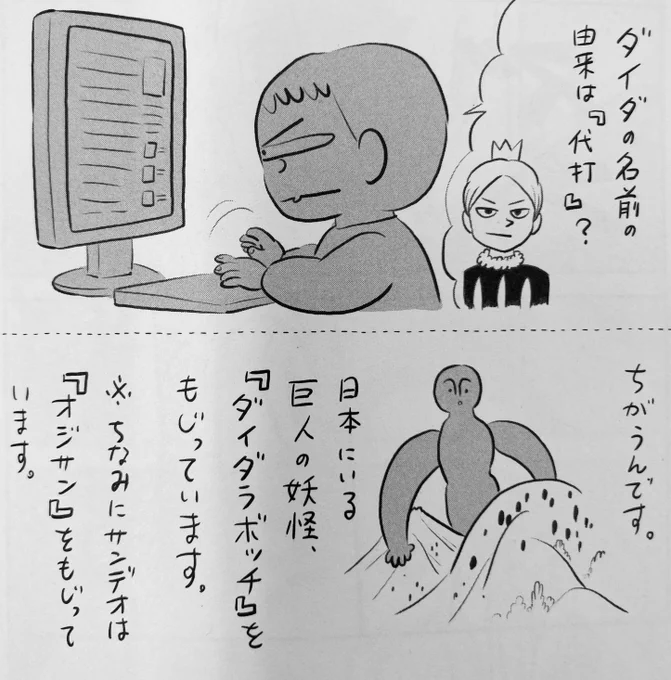 ダイダの名前の
由来は『代打』?
ちがうんです。
日本にいる
巨人の妖怪、
『ダイダラボッチ』を
もじっています。
※ちなみにサンデオは
『オジサン』をもじって
います。